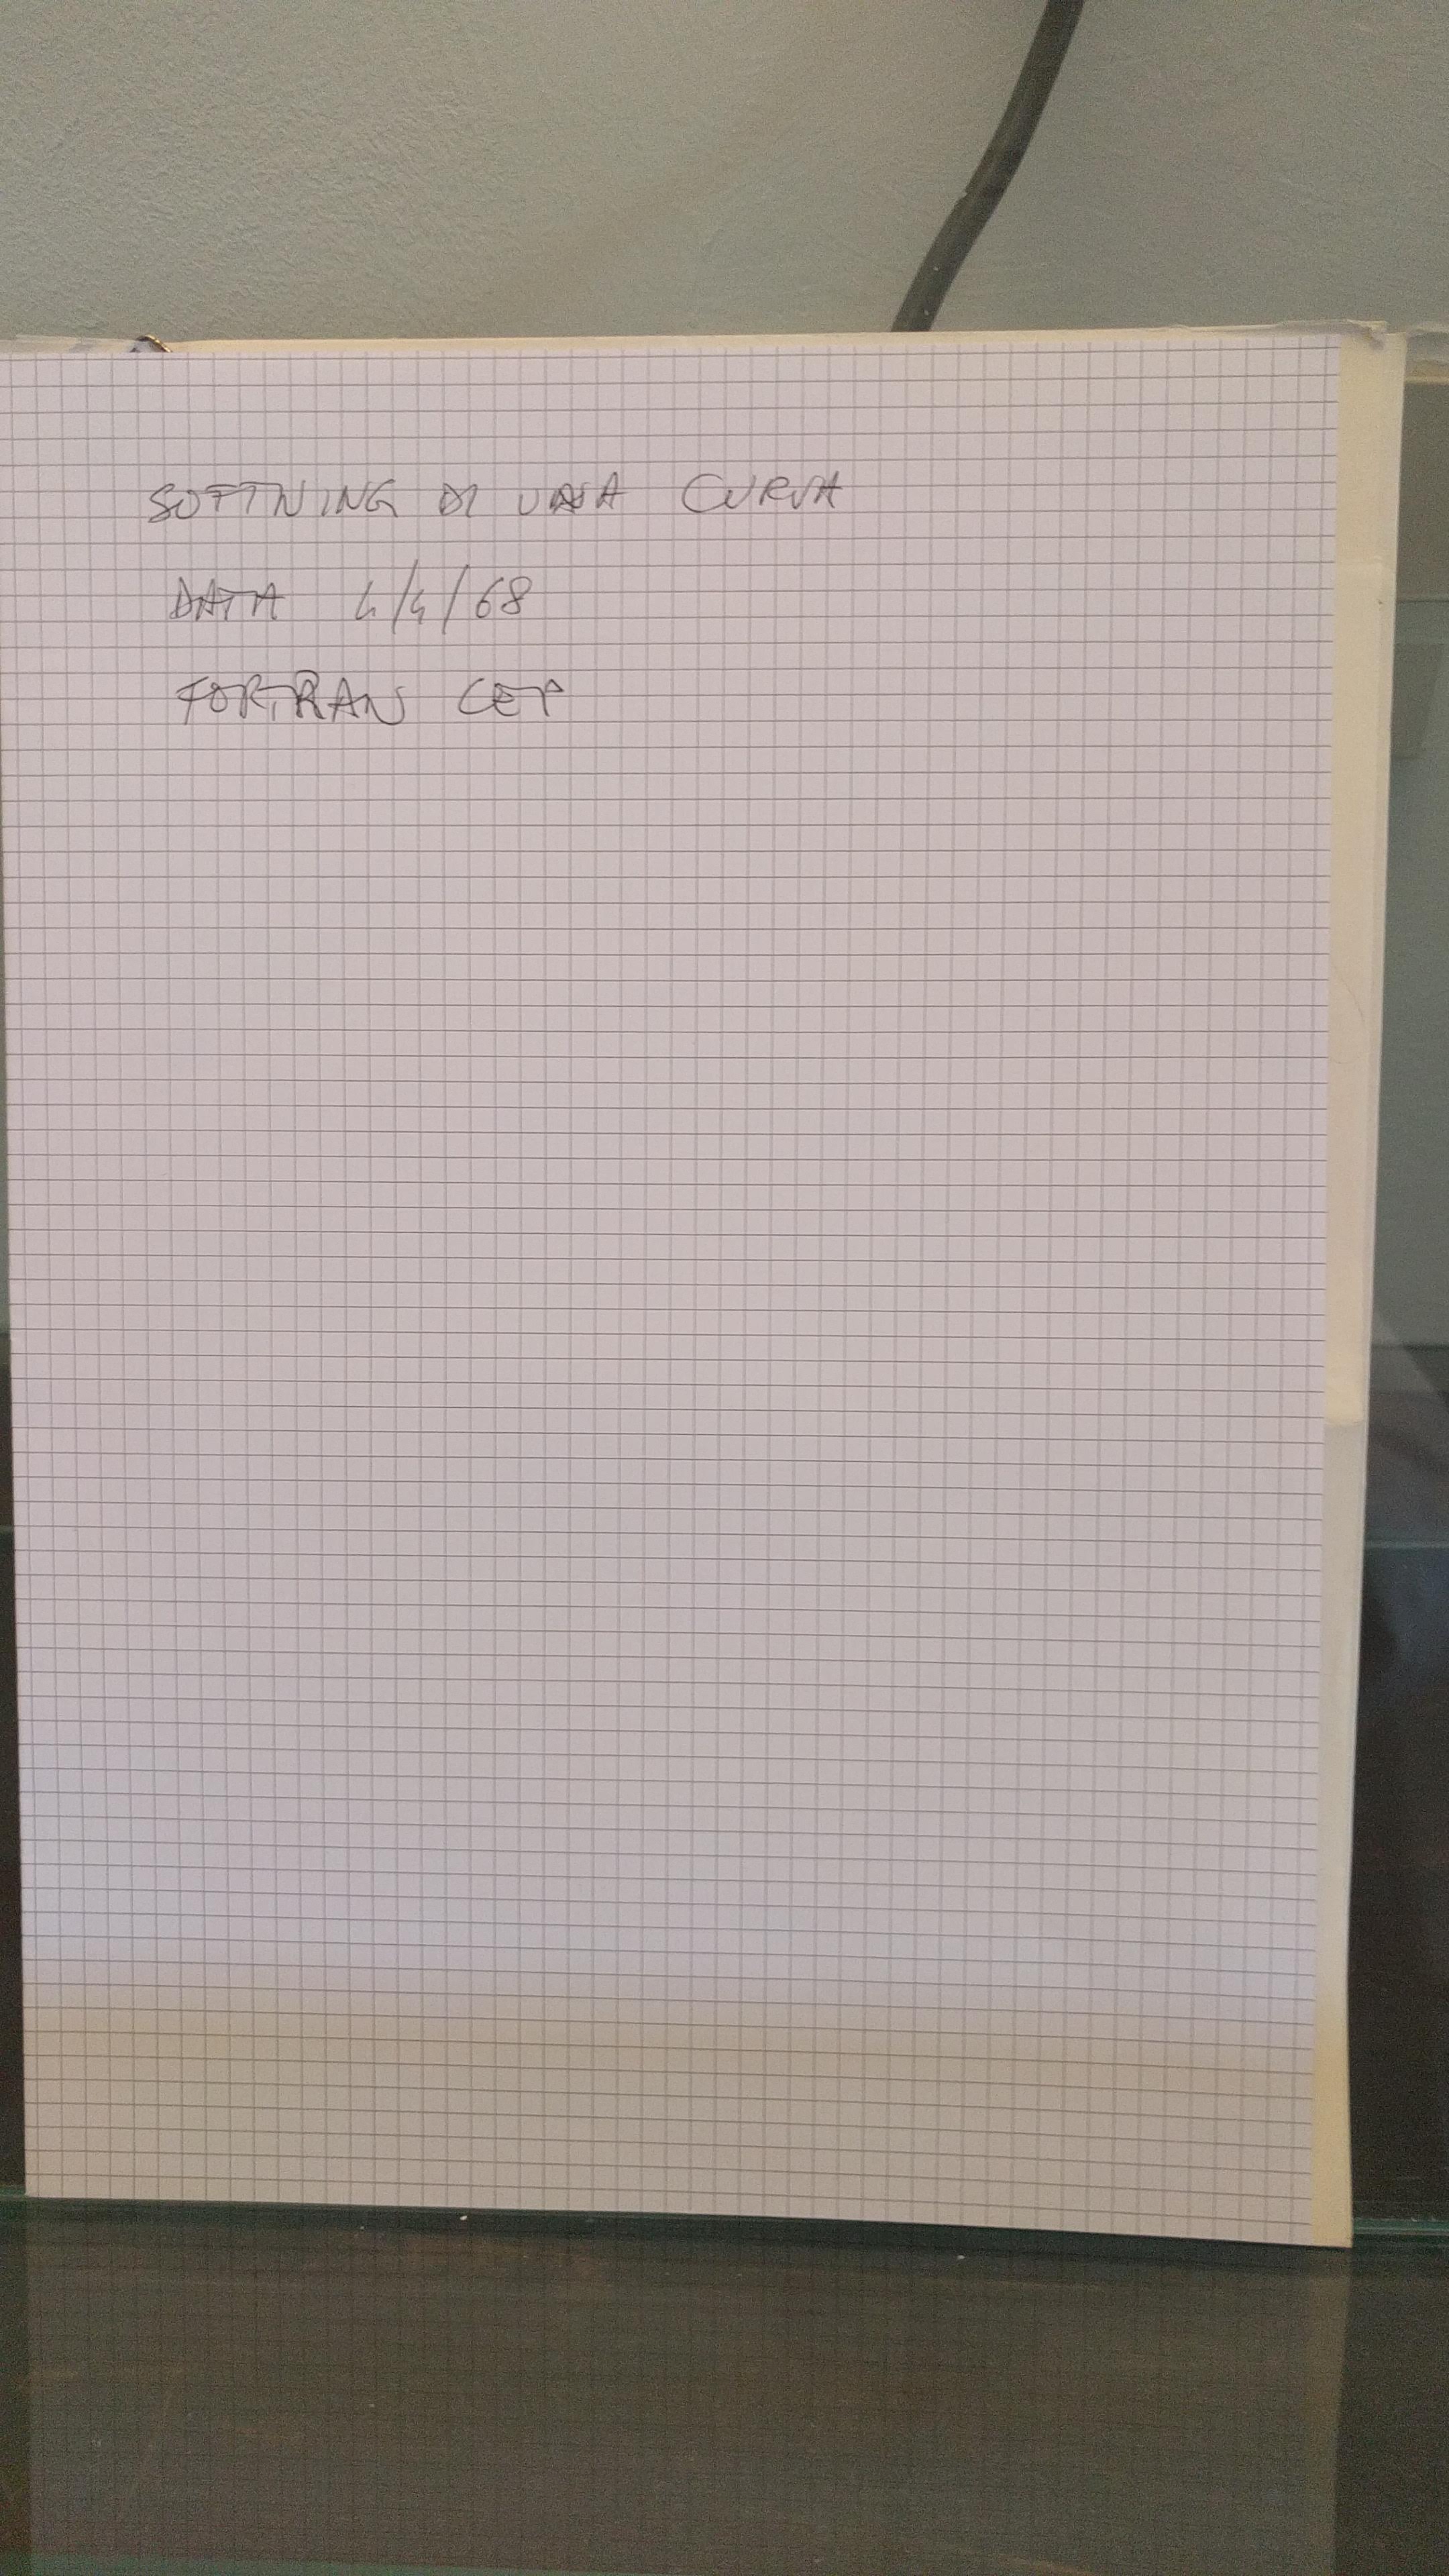 SOFTNING DI UNA CURVA
DATA 4/4/68
FORTRAN CEP